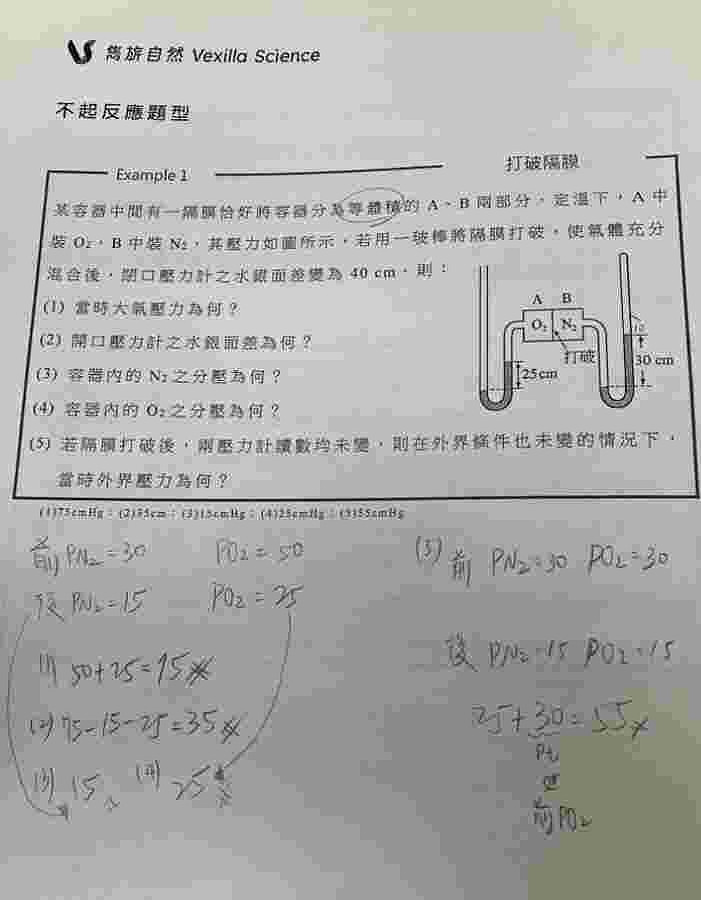 雋旅自然 Vexilla Science
不起反應題型
Example 1
打破隔膜
某容器中間有一隔膜恰好將容器分為等體積的 A、B 兩部分,定溫下,A 中
裝 O₂,B 中裝 N₂,其壓力如圖所示,若用一玻棒將隔膜打破,使氣體充分
混合後,閉口壓力計之水銀面差變為 40 cm,則:
(1) 當時大氣壓力為何?
(2) 開口壓力計之水銀面差為何?
(3) 容器內的 N₂ 之分壓為何?
(4) 容器內的 O₂ 之分壓為何?
(5) 若隔膜打破後,兩壓力計讀數均未變,則在外界條件也未變的情況下,
當時外界壓力為何?
A B
O₂ N₂
打破
25cm
30 cm
(1)75cmHg;(2)35cm;(3)15cmHg;(4)25cmHg;(5)55cmHg
前 PN₂=30 PO₂=50
後 PN₂=15 PO₂=25
(1) 50+25=75
(2) 75-15-25=35
(3) 15 (4) 25
(5) 前 PN₂=30 PO₂=30
後 PN₂=15 PO₂=15
25+30=55
前PO₂